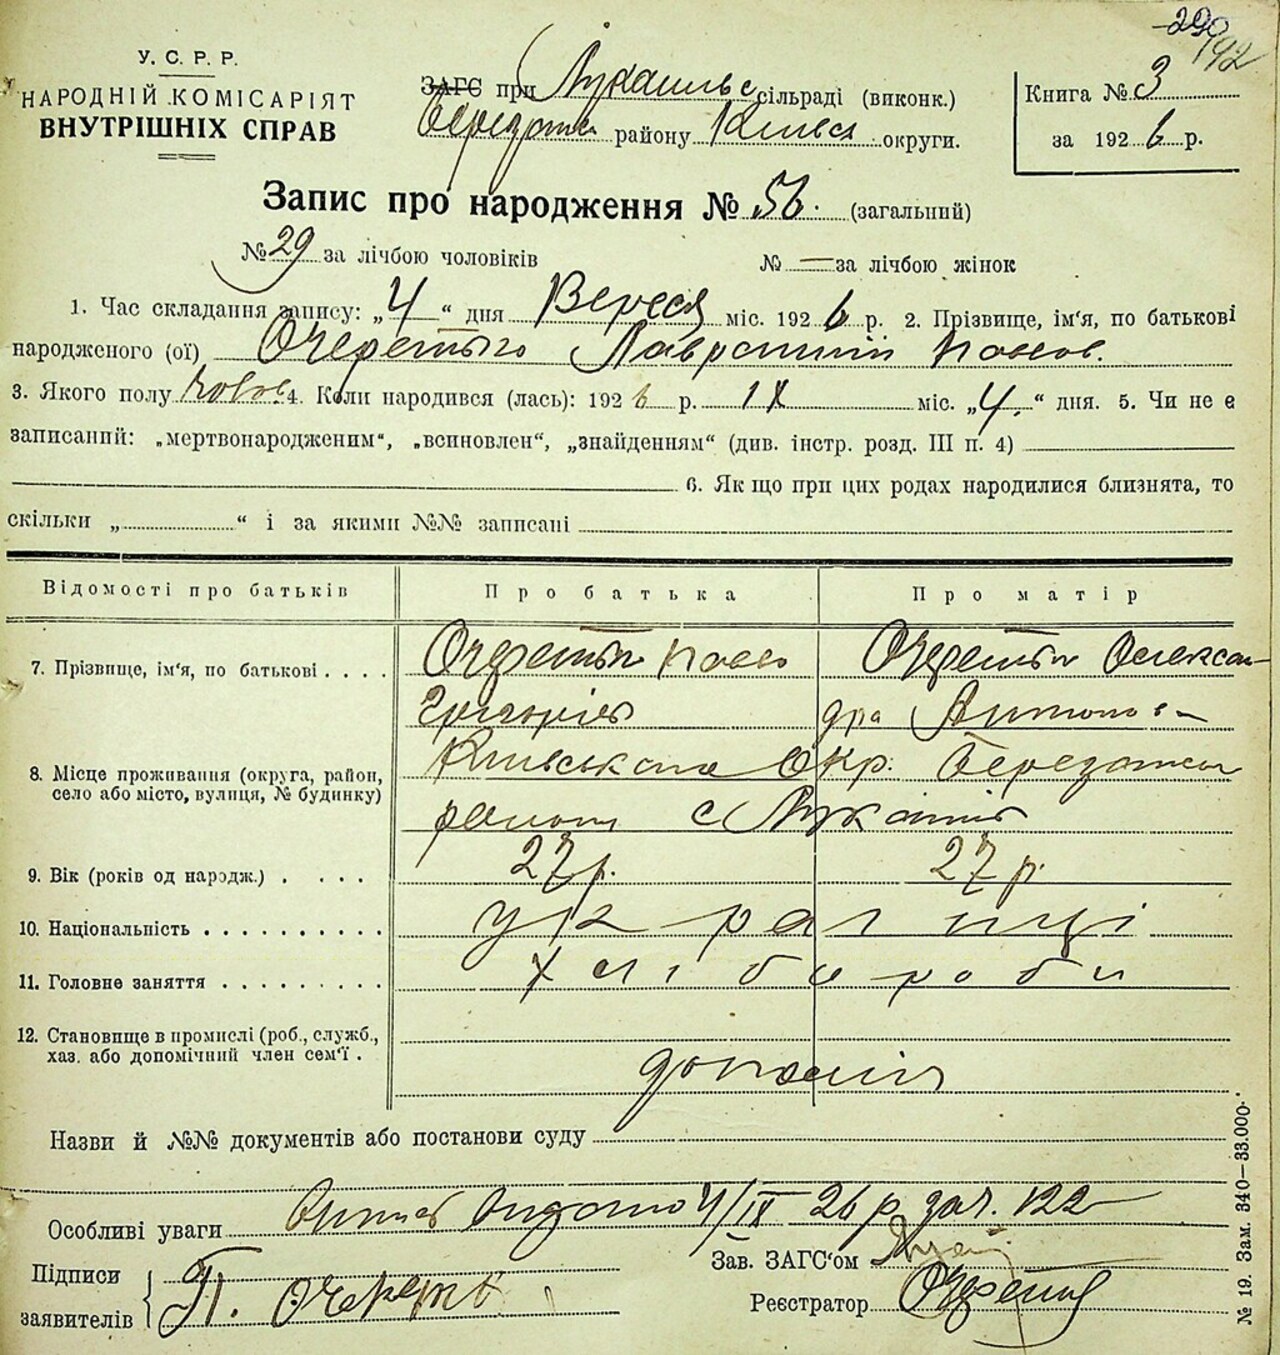 290
192
У. С. Р. Р.
НАРОДНІЙ КОМІСАРІЯТ
ВНУТРІШНІХ СПРАВ
ЗАГС при Лукашивс сільраді (виконк.)
Березанськ району Київськ округи.
Книга № 3
за 1926 р.
Запис про народження № 56. (загальний)
№ 29 за лічбою чоловіків № — за лічбою жінок
1. Час складання запису: „4“ дня Вересня міс. 1926 р. 2. Прізвище, ім'я, по батькові
народженого (ої) Очеретько Лаврентій Павлов.
3. Якого полу чолов. 4. Коли народився (лась): 1926 р. IX міс. „4.“ дня. 5. Чи не є
записаний: „мертвонародженим“, „всиновлен“, „знайденням“ (див. інстр. розд. III п. 4)
6. Як що при цих родах народилися близнята, то
скільки „ “ і за якими №№ записані
Відомості про батьків Про батька Про матір
7. Прізвище, ім'я, по батькові . . . . Павло Олексан-
Григорів дра Антонов-
8. Місце проживання (округа, район, Київська Окр. Березанськ
село або місто, вулиця, № будинку) району с Лукаші
9. Вік (років од народж.) . . . . 27 р. 27 р.
10. Національність . . . . . . . . . . українці
11. Головне заняття . . . . . . . . . хлібороби
12. Становище в промислі (роб., служб.,
хаз. або допомічний член сем'ї .
Назви й №№ документів або постанови суду
Особливі уваги Видано 4/IX 26 р. 122
Підписи
заявителів П. Очереть
Зав. ЗАГС'ом
Реєстратор
№ 19. Зам. 340—33.000.